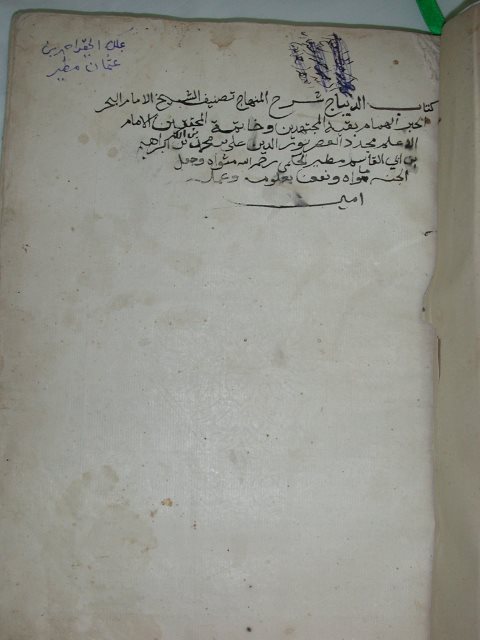 ملك الحقير احمد بن
عثمان مطير
كتاب الديباج شرح المنهاج تصنيف الشيخ الامام البحر
الحبر الهمام بقية المجتهدين وخاتمة المحققين الامام
العلامه مجدد العصر نور الدين علي بن محمد بن ابراهيم
بن ابي القاسم مطير الحكمي رحم الله مثواه وجعل
الجنه مأواه ونفعنا بعلومه وعمله
امين